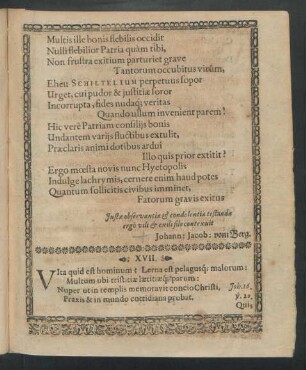 Multis ille bonis flebilis occidit
Nulli flebilior Patria quàm tibi,
Non frustra exitium parturiet grave
Tantorum occubitus virûm,
Eheu SCHILTELIUM perpetuus sopor
Urget, cui pudor & justitiæ soror
Incorrupta fides nudaq; veritas
Quando ullum invenient parem?
Hic verè Patriam consilijs bonis
Undantem varijs fluctibus extulit,
Præclaris animi dotibus ardui
Illo quis prior extitit?
Ergo mœsta novis nunc Hyetopolis
Indulge lachrymis, cernere enim haud potes
Quantum sollicitis civibus imminet,
Fatorum gravis exitus
Justæ observantiæ & condolentiæ testandæ
ergò
Johann: Jacob: vom Berg.
XVII.
VIta quid est hominum? Lerna est pelagusq; malorum:
Multum ubi tristitiæ lætitiæq; parum:
Nuper ut in templis memoravit concio Christi,
Praxis & in mundo cottidiana probat.
Joh. 16.
ỳ. 20.
Quis